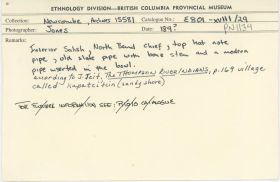 ETHNOLOGY DIVISION—BRITISH COLUMBIA PROVINCIAL MUSEUM
Collection: Newcombe, Archives 15581 Catalogue No.: E801-XVIII/29
Photographer: Jones Date: 189? PN1134
Remarks:
Interior Salish, North Bend chief, top hat note
pipe, old slate pipe with bone stem and a modern
pipe inserted in the bowl.
according to J. Teit, The THOMPSON RIVER INDIANS, p.169 village
called kapatcitcin (sandy shore)
FOR FURTHER INFORMATION SEE: PHOTO CATALOGUE